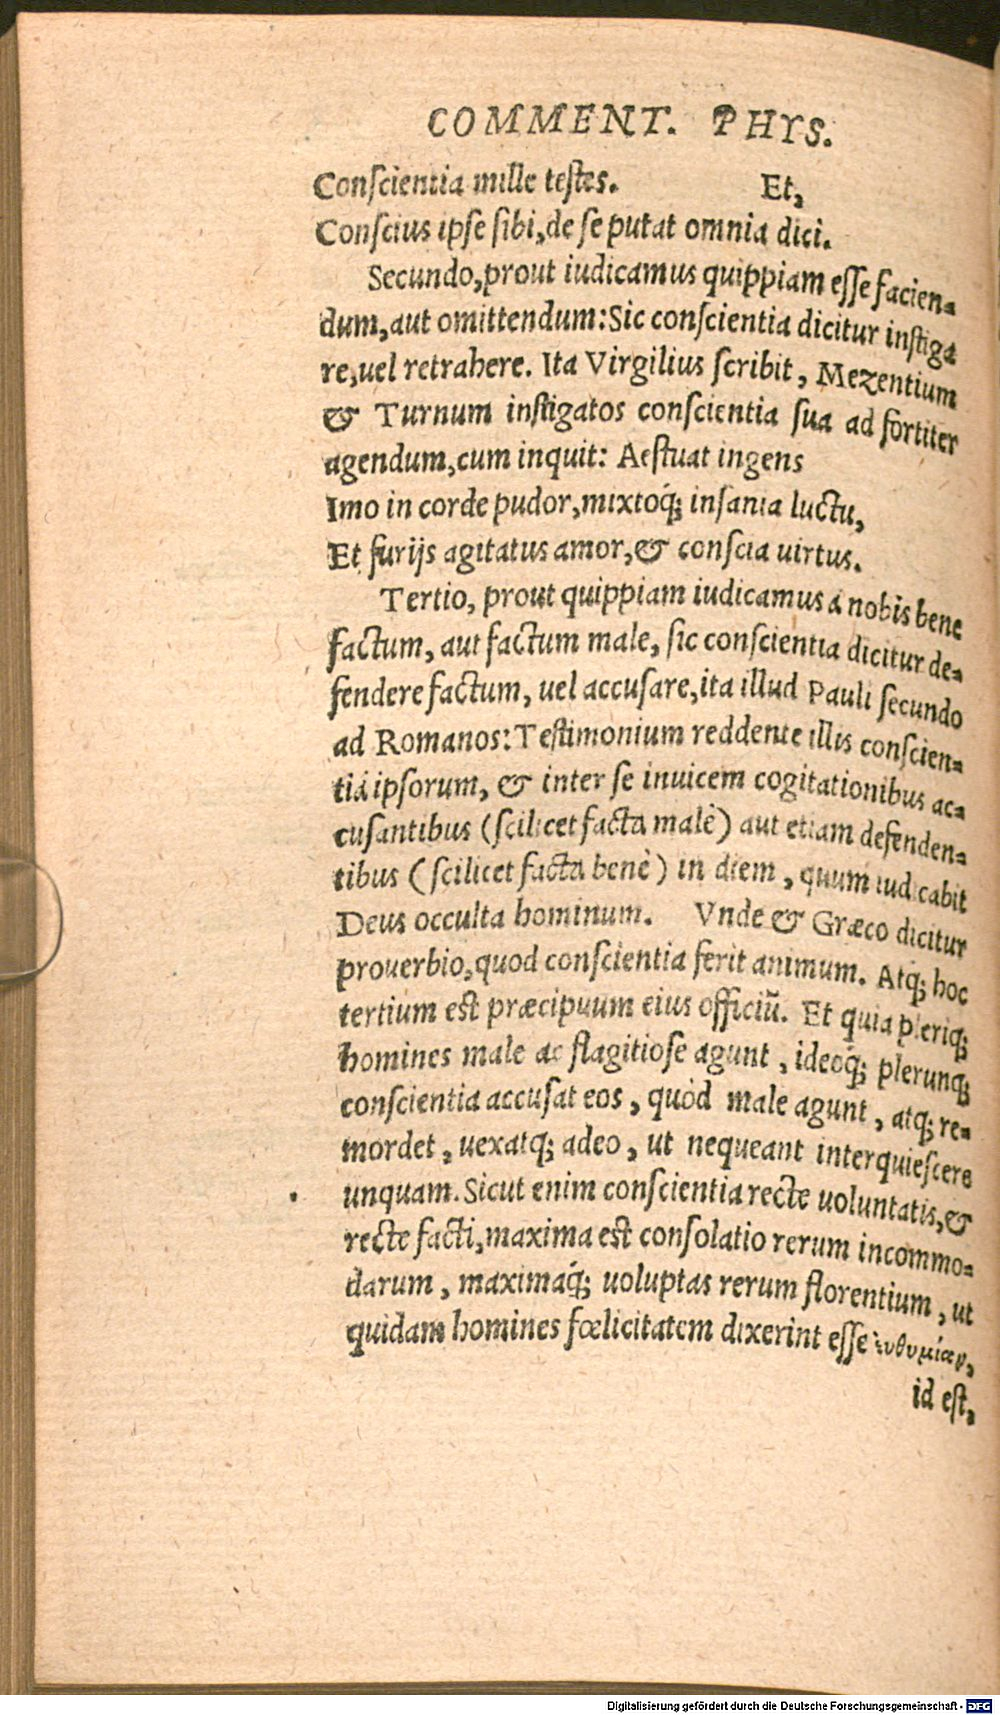 COMMENT. PHYS.
Conſcientia mille teſtes. Et,
Conſcius ipſe ſibi, de ſe putat omnia dici.
Secundo, prout iudicamus quippiam eſſe facien-
dum, aut omittendum: Sic conſcientia dicitur inſtiga
re, uel retrahere. Ita Virgilius ſcribit, Mezentium
& Turnum inſtigatos conſcientia ſua ad fortiter
agendum, cum inquit: Aeſtuat ingens
Imo in corde pudor, mixtoq́; inſania luctu,
Et furijs agitatus amor, & conſcia uirtus.
Tertio, prout quippiam iudicamus à nobis bene
factum, aut factum male, ſic conſcientia dicitur de-
fendere factum, uel accuſare, ita illud Pauli ſecundo
ad Romanos: Teſtimonium reddente illis conſcien-
tiá ipſorum, & inter ſe inuicem cogitationibus ac-
cuſantibus (ſcilicet facta malè) aut etiam defenden-
tibus (ſcilicet facta benè) in diem, quum iudicabit
Deus occulta hominum. Vnde & Græco dicitur
prouerbio, quod conſcientia ferit animum. Atq; hoc
tertium eſt præcipuum eius officiũ. Et quia pleriq;
homines male ac flagitioſe agunt, ideoq́; plerunq;
conſcientia accuſat eos, quòd male agunt, atq; re-
mordet, uexatq; adeo, ut nequeant interquieſcere
unquam. Sicut enim conſcientia recte uoluntatis, &
recte facti, maxima eſt conſolatio rerum incommo-
darum, maximaq́; uoluptas rerum florentium, ut
quidam homines fœlicitatem dixerint eſſe ἐυθυμίαν,
id eſt,
Digitalisierung gefördert durch die Deutsche Forschungsgemeinschaft - DFG